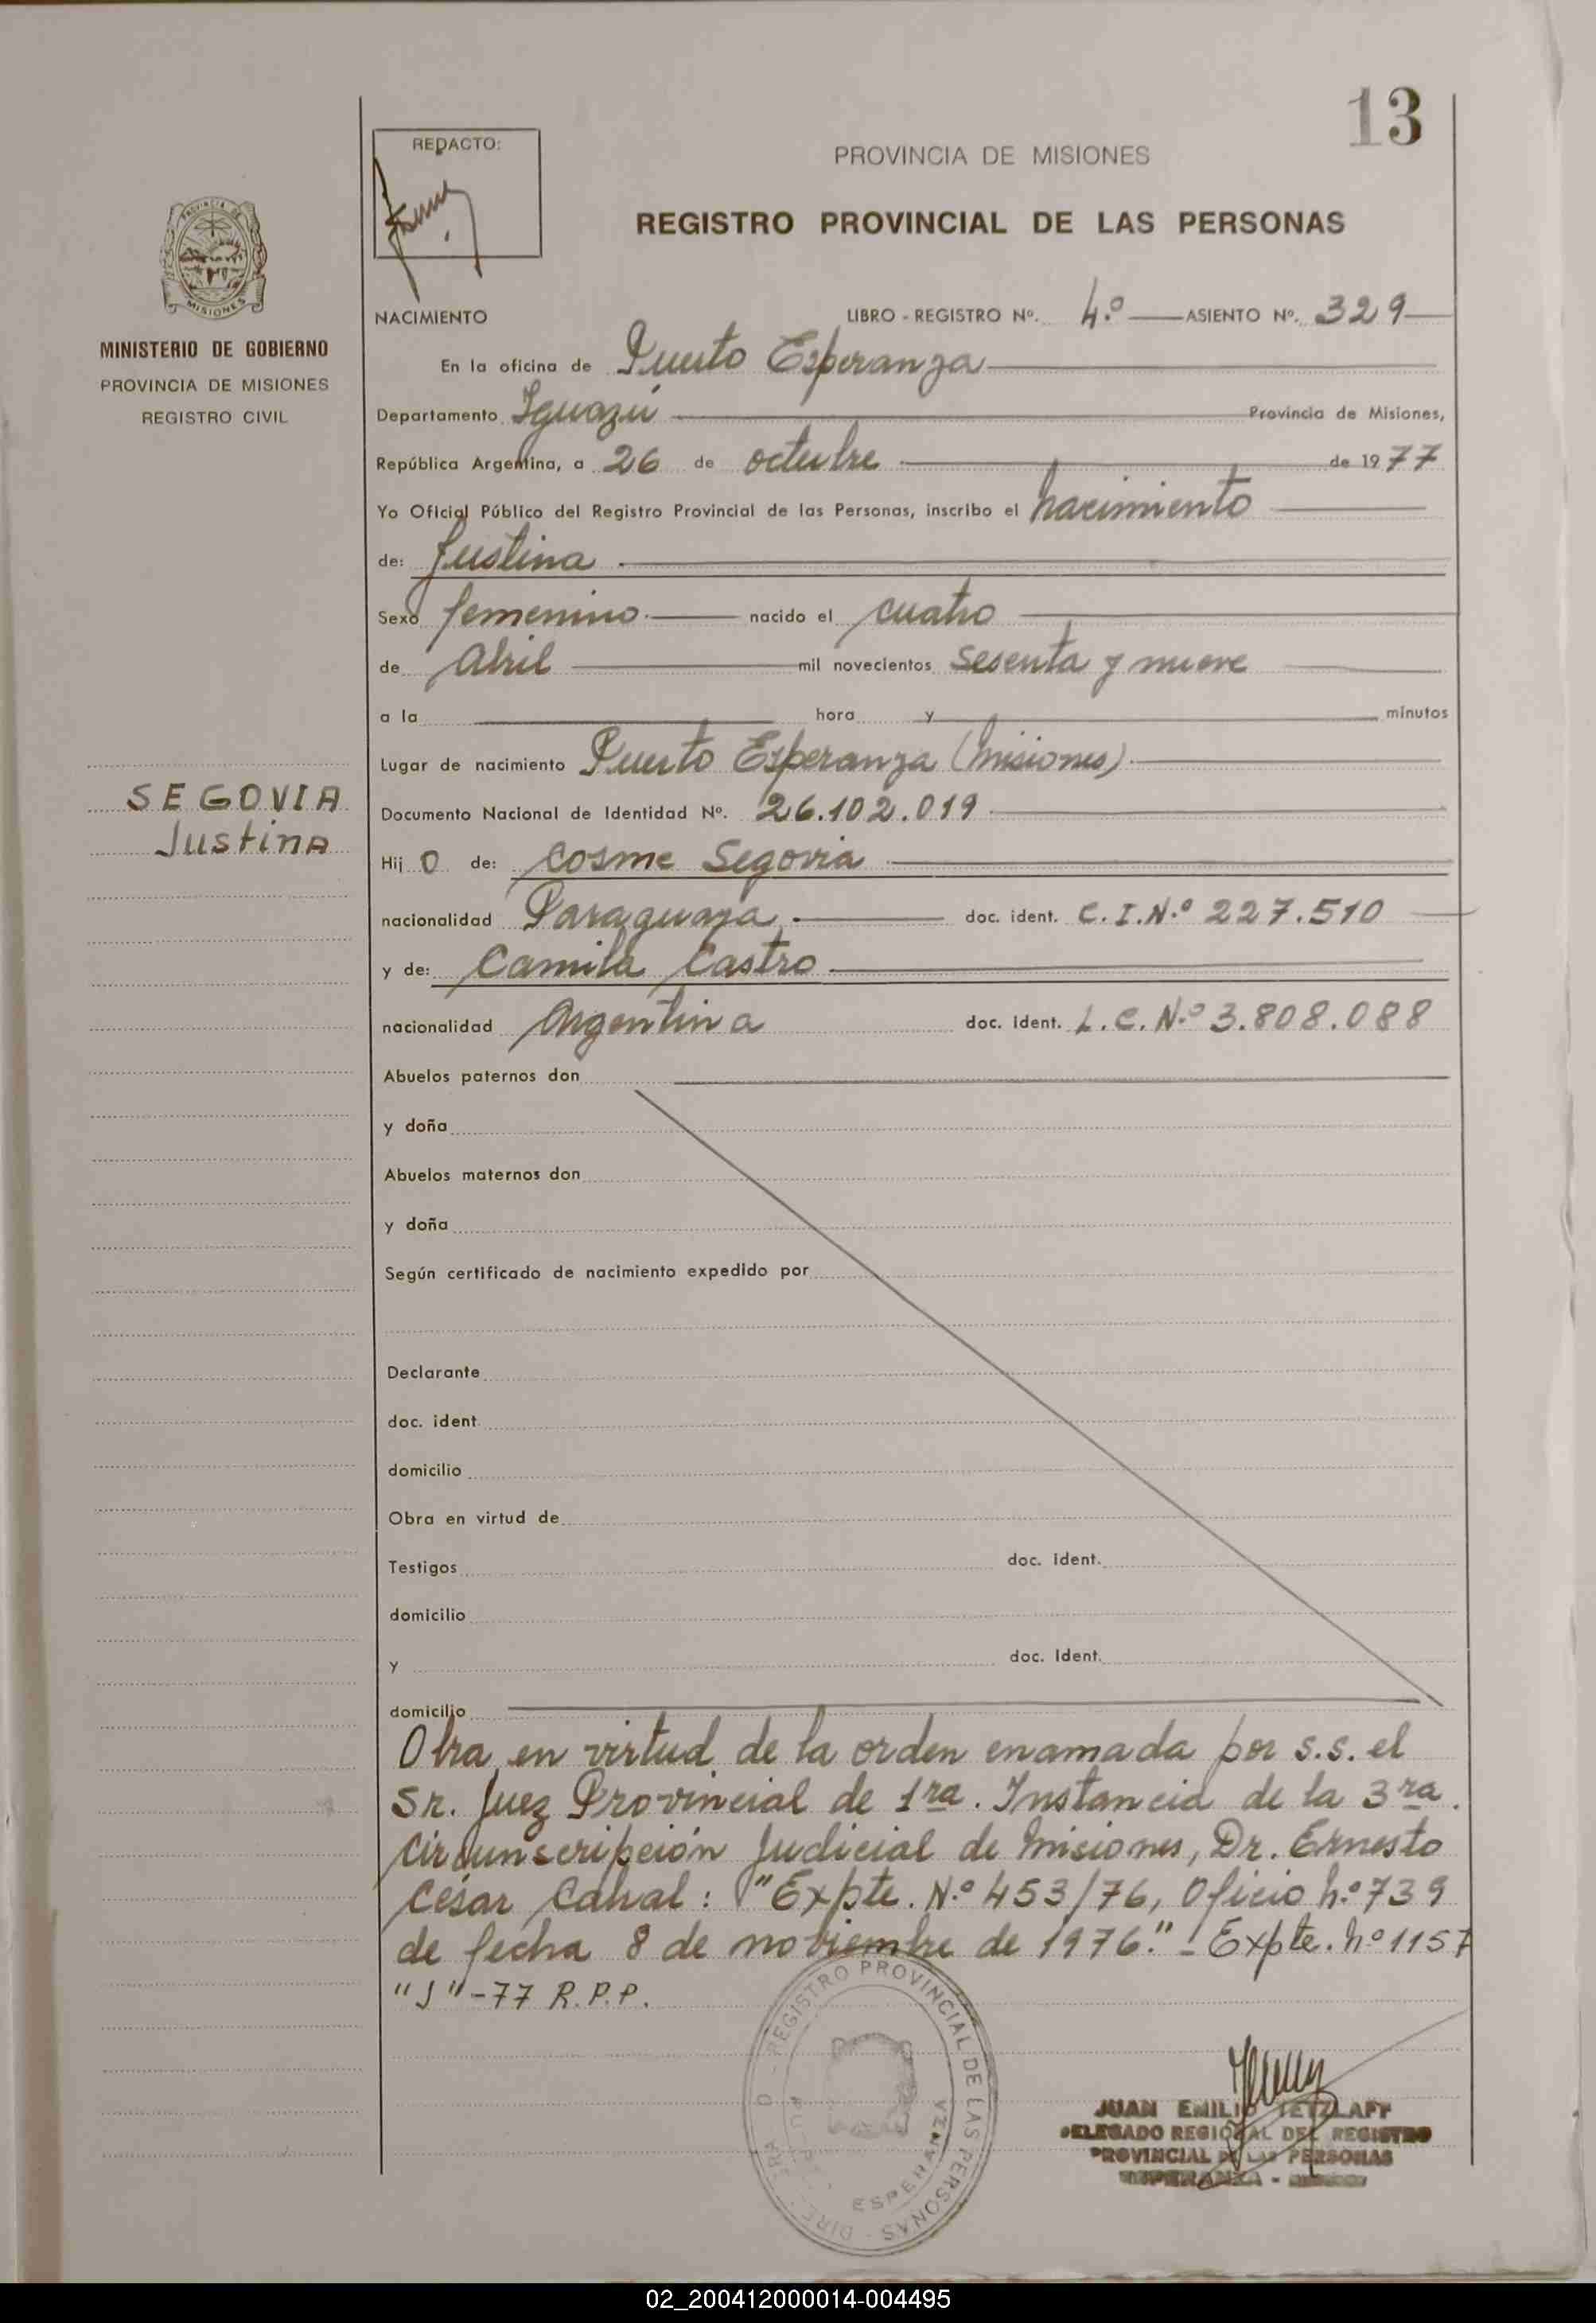 13
REDACTO:
PROVINCIA DE MISIONES
REGISTRO PROVINCIAL DE LAS PERSONAS
PROVINCIA DE
MISIONES
MINISTERIO DE GOBIERNO
PROVINCIA DE MISIONES
REGISTRO CIVIL
NACIMIENTO LIBRO - REGISTRO Nº. 4.º ASIENTO Nº. 329
En la oficina de Puerto Esperanza
Departamento Iguazú Provincia de Misiones,
República Argentina, a 26 de octubre de 1977
Yo Oficial Público del Registro Provincial de las Personas, inscribo el nacimiento
de: Justina
Sexo femenino. nacido el cuatro
de Abril mil novecientos sesenta y nueve
a la hora y minutos
Lugar de nacimiento Puerto Esperanza (Misiones).
SEGOVIA
Justina
Documento Nacional de Identidad Nº. 26.102.019
Hij o de: Cosme Segovia
nacionalidad Paraguaya. doc. ident. C.I.N.º 227.510
y de: Camila Castro
nacionalidad Argentina doc. ident. L.C. N.º 3.808.088
Abuelos paternos don
y doña
Abuelos maternos don
y doña
Según certificado de nacimiento expedido por
Declarante
doc. ident
domicilio
Obra en virtud de
Testigos doc. ident.
domicilio
y doc. Ident.
domicilio
Obra en virtud de la orden enamada por s.s. el
Sr. Juez Provincial de 1ra. Instancia de la 3ra.
Circunscripción Judicial de Misiones, Dr. Ernesto
César Cabral: "Expte. N.º 453/76, Oficio n.º 739
de fecha 8 de noviembre de 1976." - Expte. nº 1157
"J"-77 R.P.P.
REGISTRO PROVINCIAL DE LAS PERSONAS
ESPERANZA
JUAN EMILIO TETZLAFF
DELEGADO REGIONAL DEL REGISTRO
PROVINCIAL DE LAS PERSONAS
ESPERANZA -
02_200412000014-004495